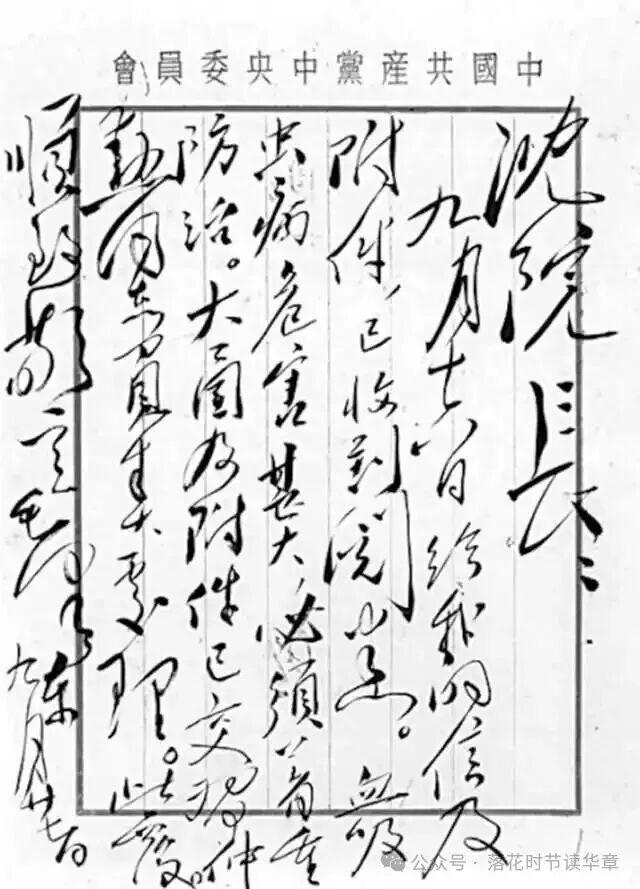 中國共産黨中央委員會
沈院長：
九月十六日給我的信及
附件，已收到閱悉。血吸
虫病危害甚大，必須着重
防治。大函及附件已交習仲
勳同志負責處理。此復。
順致敬意 毛澤東 九月廿七日
公众号 · 落花时节读华章